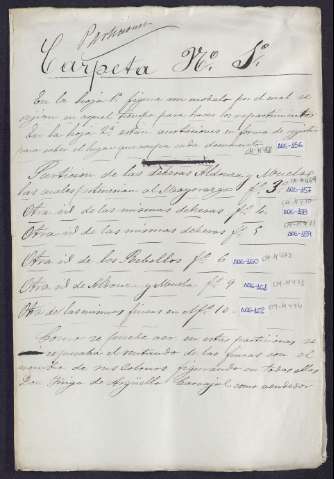 Particiones
Carpeta Nº 5º
En la hoja 1ª figura un modulo por el cual se
regian en aquel tiempo para hacer los repartimientos
En la hoja 2ª estan anotaciones en forma de
sobre el lugar que ocupa cada documento D05-156
Particion de las dehesas Aldonza y Mouelas
las cuales pertenecian al Mayorazgo fº 3 D05-157
Otra id de las mismas dehesas fº 4 D05-158
Otra id de las mismas dehesas fº 5 D05-159
Otra id de los Rebollos fº 6 D05-160
Otra id de Aldonza y Mouela fº 9 D05-161
Otra de las mismas fincas en el fº 10 D05-162
Como se puede ver en estas particiones se
el sorteado de las fincas con el
nombre de mis Colonos figurando en todas ellas
Don Iñigo de Argüello Carvajal como vendedor